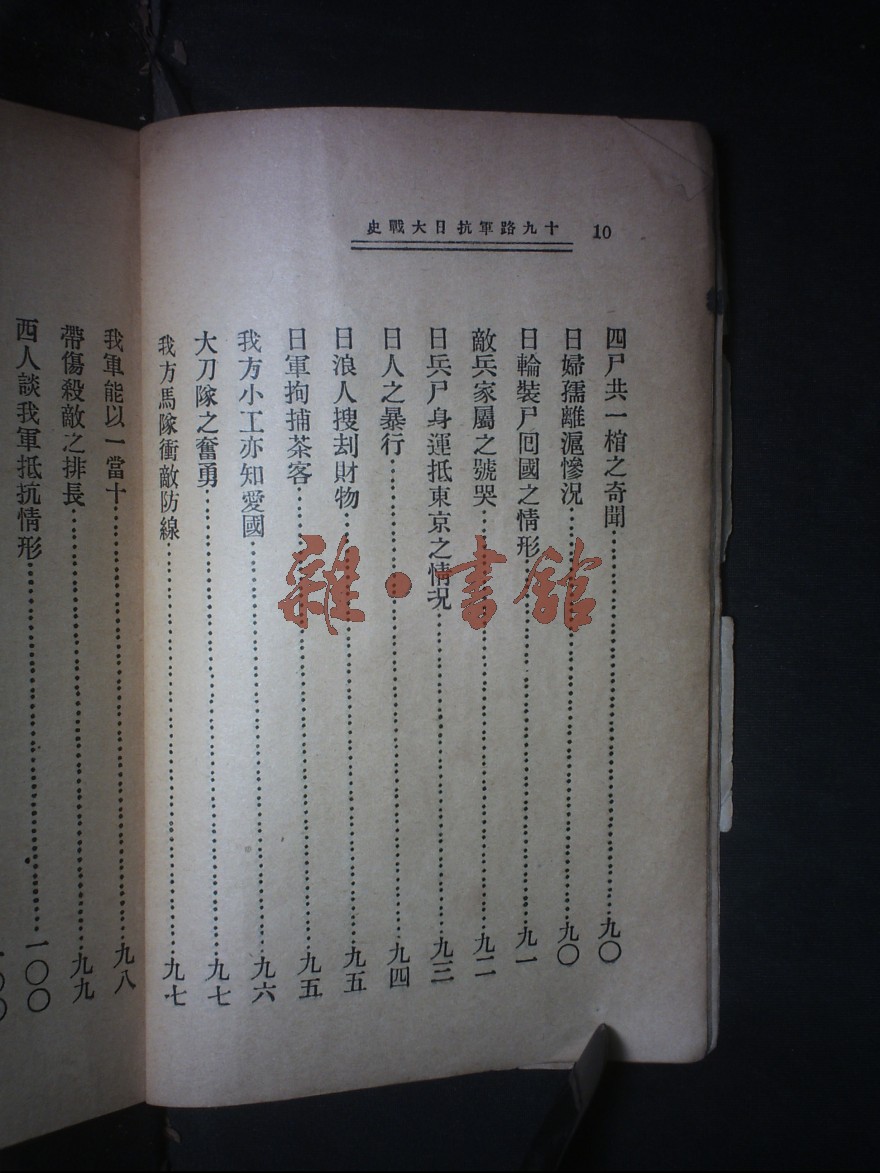 十九路軍抗日大戰史 10
四尸共一棺之奇聞……九〇
日婦孺離滬慘況……九〇
日輪裝尸囘國之情形……九一
敵兵家屬之號哭……九二
日兵尸身運抵東京之情況……九三
日人之暴行……九四
日浪人搜刦財物……九五
日軍拘捕茶客……九五
我方小工亦知愛國……九六
大刀隊之奮勇……九七
我方馬隊衝敵防線……九七
我軍能以一當十……九八
帶傷殺敵之排長……九九
西人談我軍抵抗情形……一〇〇
一〇〇
雜·書館